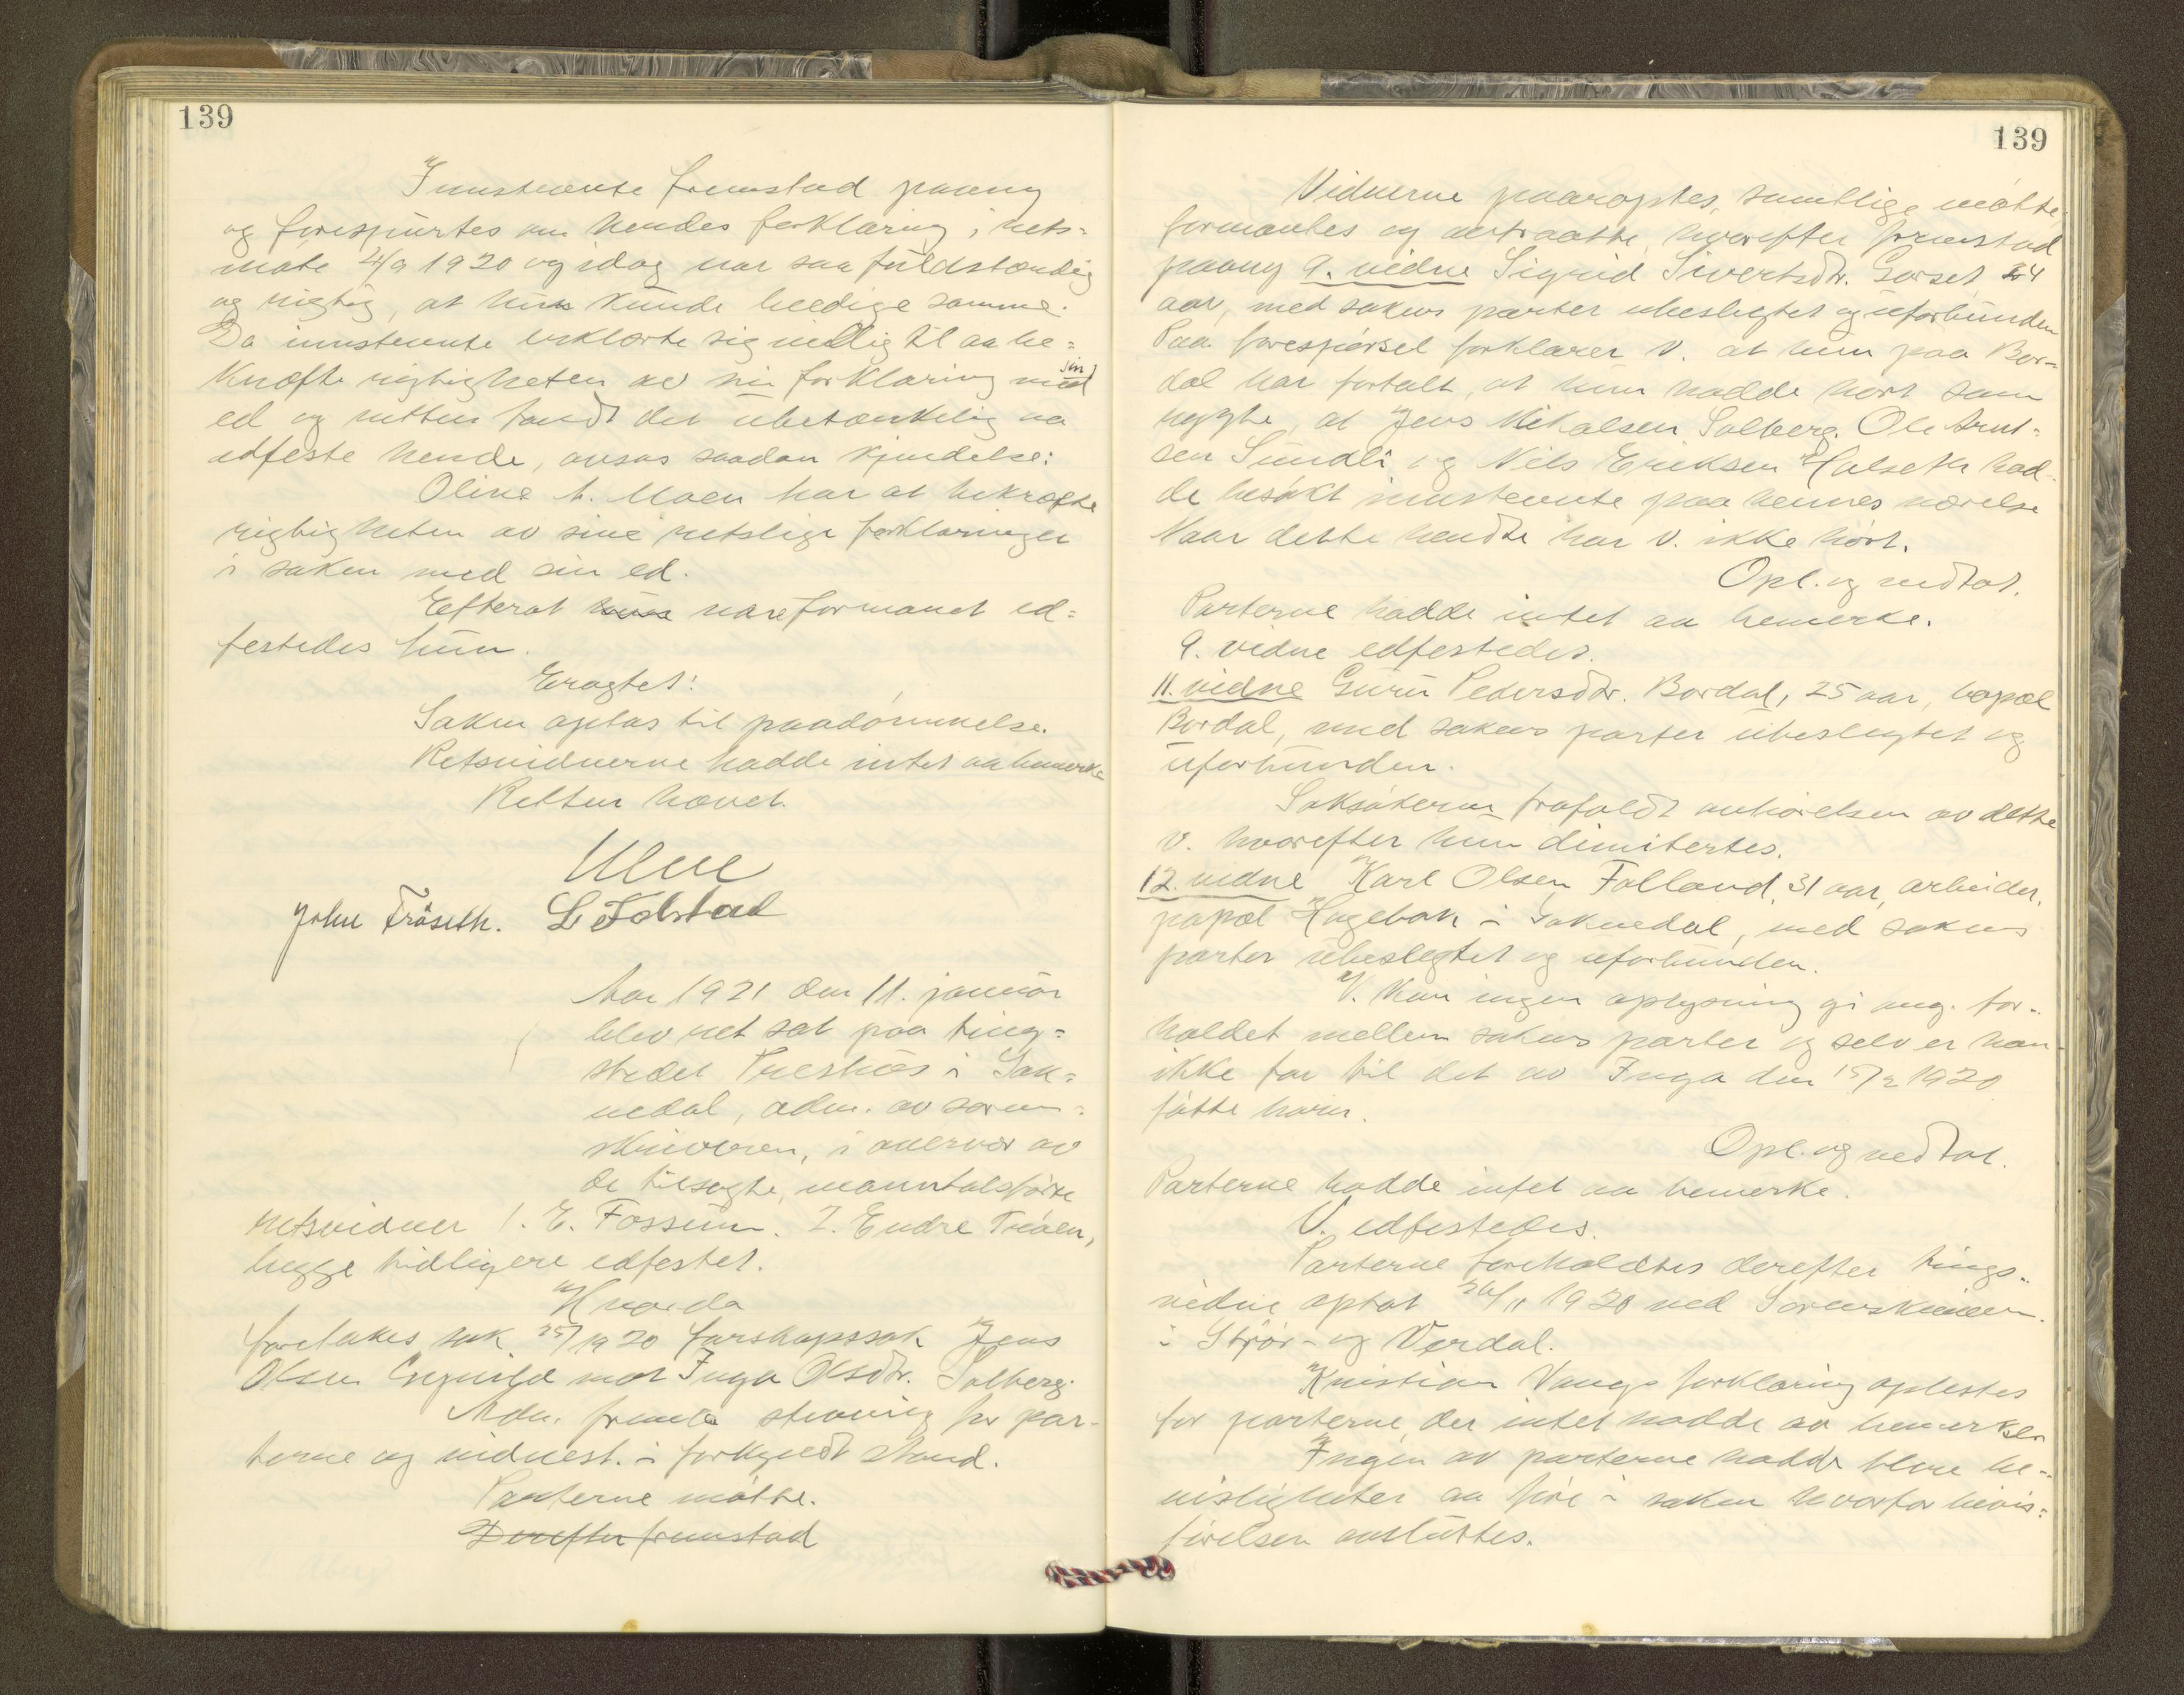 139
Innstevnte fremstod paany
og forespurtes om hendes forklaring i rets-
møte 4/9 1920 og idag var saa fuldstændig
og rigtig, at hun kunde beedige samme.
Da innstevnte erklærte sig villig til aa be-
kræfte rigtigheten av sin forklaring med sin
ed og retten fandt det ubetænkelig aa
edfeste hende, avsas saadan kjendelse:
Oline A. Moen har at bekræfte
rigtigheten av sine retslige forklaringer
i saken med sin ed.
Efterat hun var formanet ed-
festedes hun.
Eragtet:
Saken optas til paadømmelse.
Retsvidnerne hadde intet aa bemerke
Retten hævet.
John Frøseth. L Folstad
Aar 1921 den 11. januar
blev ret sat paa ting-
stedet Presthus i Sok-
nedal, adm. av soren-
skriveren, i overvær av
de tilsagte, manntalsførte
retsvidner 1. E. Fossum. 2. Endre Trøen,
begge tidligere edfestet.
Hvorda
foretokes sak 25/1920 farskapssak Jens
Olsen mot Inga Olsdtr. Solberg.
Adm. fremla stevning for par-
terne og vidnest. i forkyndt stand.
Parterne møtte.
Derefter fremstod
139
Vidnerne paaroptes, samtlige møtte,
formantes og avtraatte, hvorefter fremstod
paany 9. vidne Sigrid Sivertsdtr. Gorset 24
aar, med sakens parter ubeslegtet og uforbunden
Paa forespørsel forklarer V. at hun paa Bor-
dal har fortalt, at hun hadde hørt som
rygte, at Jens Mikalsen Solberg, Ole Arnt-
sen Sundli og Nils Eriksen Halseth had-
de besøkt innstevnte paa hennes værelse
Naar dette hendte har V. ikke hørt.
Opl. og vedtat.
Parterne hadde intet aa bemerke.
9. vidne edfestedes.
11. vidne Guru Pedersdtr. Bordal, 25 aar, bopæl
Bordal, med sakens parter ubeslegtet og
uforbunden.
Saksøkeren frafaldt avhørelsen av dette
V. hvorefter hun dimitertes.
12. vidne Karl Olsen Folland, 31 aar, arbeider,
papæl Hagebak i Soknedal, med sakens
parter ubeslegtet og uforbunden.
V. kan ingen oplysning gi ang. for-
holdet mellem sakens parter og selv er han
ikke far til det av Inga den 15/2 1920
fødte barn.
Opl. og vedtat.
Parterne hadde intet aa bemerke.
V. edfestedes.
Parterne foreholdtes derefter tings-
vidne optat 26/11 1920 ved Sorenskriveren
i Stjør- og Verdal.
Kristian Vangs forklaring oplestes
for parterne, der intet hadde aa bemerke
Ingen av parterne hadde flere be-
visligheter aa føre i saken hvorfor bevis-
førelsen avsluttes.